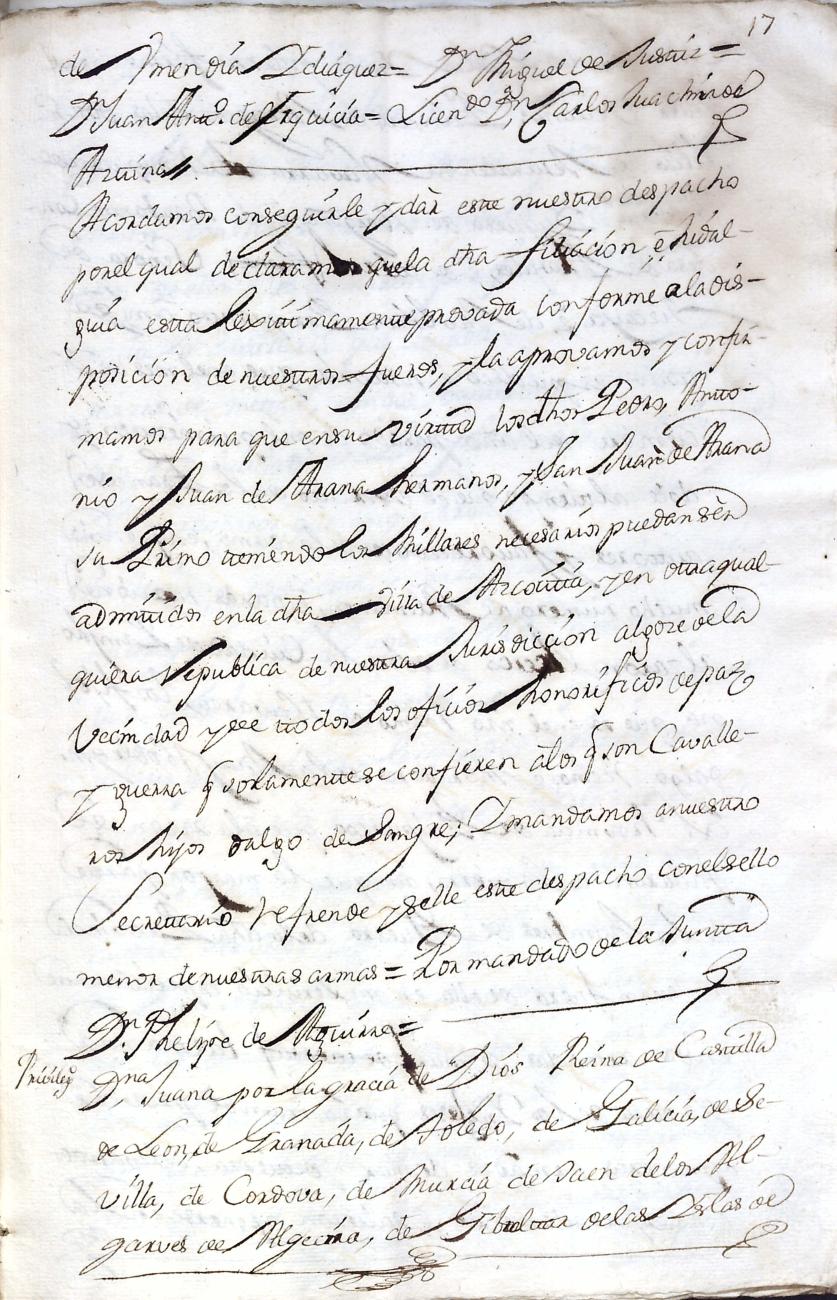 17
de Ymendía Ydiáquez = Dn Miguel de Justiz =
D. Juan Anto. de Erquicia = Licendo Dn Carlos Juachín de
Arana
Acordamos conseguirle y dàr este nuestro despacho
por el qual declaramos que la dha filiación, è hidal-
guía esta lexitimamente provada conforme a la dis-
posición de nuestros fueros, y la aprovamos y confir-
mamos para que en su virttud los dhos Pedro, Antto-
nio y Juan de Arana hermanos, y San Juan de Arana
su Primo tteniendo los Millares necesarios puedan sèr
admitidos en la dha villa de Azcoittia, y en otra qual-
quiera Republica de nuestra Jurisdicción al goze de la
Vecindad y de ttodos los oficios honoríficos de paz
y guerra q̃ solamentte se confieren a los q̃ son Cavalle-
ros hijos dalgo de Sangre; Y mandamos a nuestro
Secrettario refrende y selle este despacho con el sello
menor de nuestras armas = Por mandado de la Juntta
Dn. Phelipe de Aguirre =
Privilegº
Dna Juana por la gracia de Dios Reina de Castilla
de Leon, de Granada, de Toledo, de Galicia, de Se-
villa, de Cordova, de Murcia de Jaen de los Al-
garves de Algecira, de Gibraltar de las Yslas de